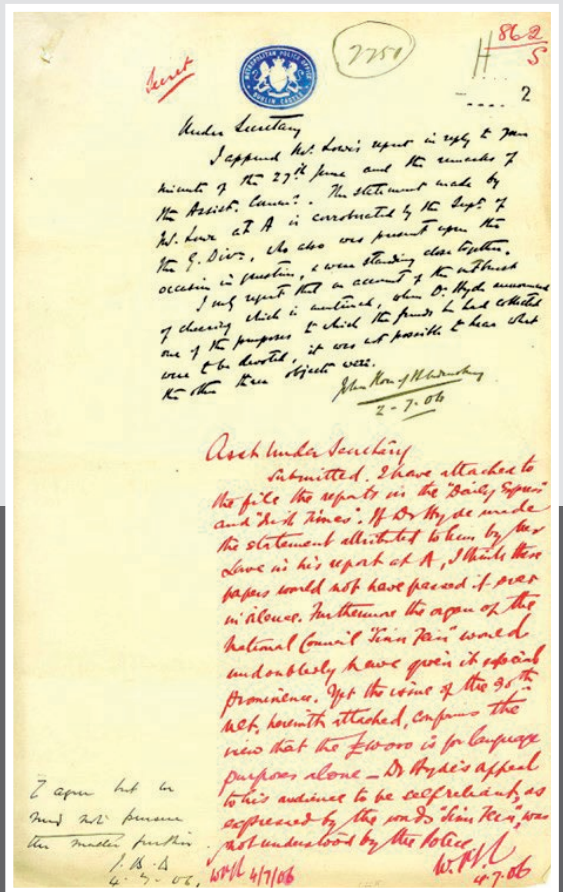 Secret
METROPOLITAN POLICE OFFICE
DUBLIN CASTLE
7750
862
S
2
Under Secretary
I append Mr. Lowe's report in reply to your
minute of the 27th June and the remarks of
the Assist. Commr. The statement made by
Mr. Lowe at A is corroborated by the Supt. of
the G. Divn, who also was present upon the
occasion in question, & were standing close together.
I only regret that on account of the outburst
of cheering which is mentioned, when Dr Hyde announced
one of the purposes to which the funds he had collected
were to be devoted, it was not possible to hear what
the other three objects were.
John
2-7-06
Asst Under Secretary
Submitted. I have attached to
the file the reports in the "Daily Express"
and "Irish Times". If Dr Hyde made
the statement attributed to him by Mr
Lowe in his report at A, I think these
papers would not have passed it over
in silence. Furthermore the organ of the
National Council "Sinn Fein" would
undoubtedly have given it special
prominence. Yet the issue of the 30th
ult, herewith attached, confirms the
view that the £10000 is for language
purposes alone _ Dr Hyde's appeal
to his audience to be self reliant, as
expressed by the words "Sinn Fein", was
not understood by the Police.
4.7.06
4/7/06
I agree but we
need not pursue
the matter further
J.B.D
4.7.06.